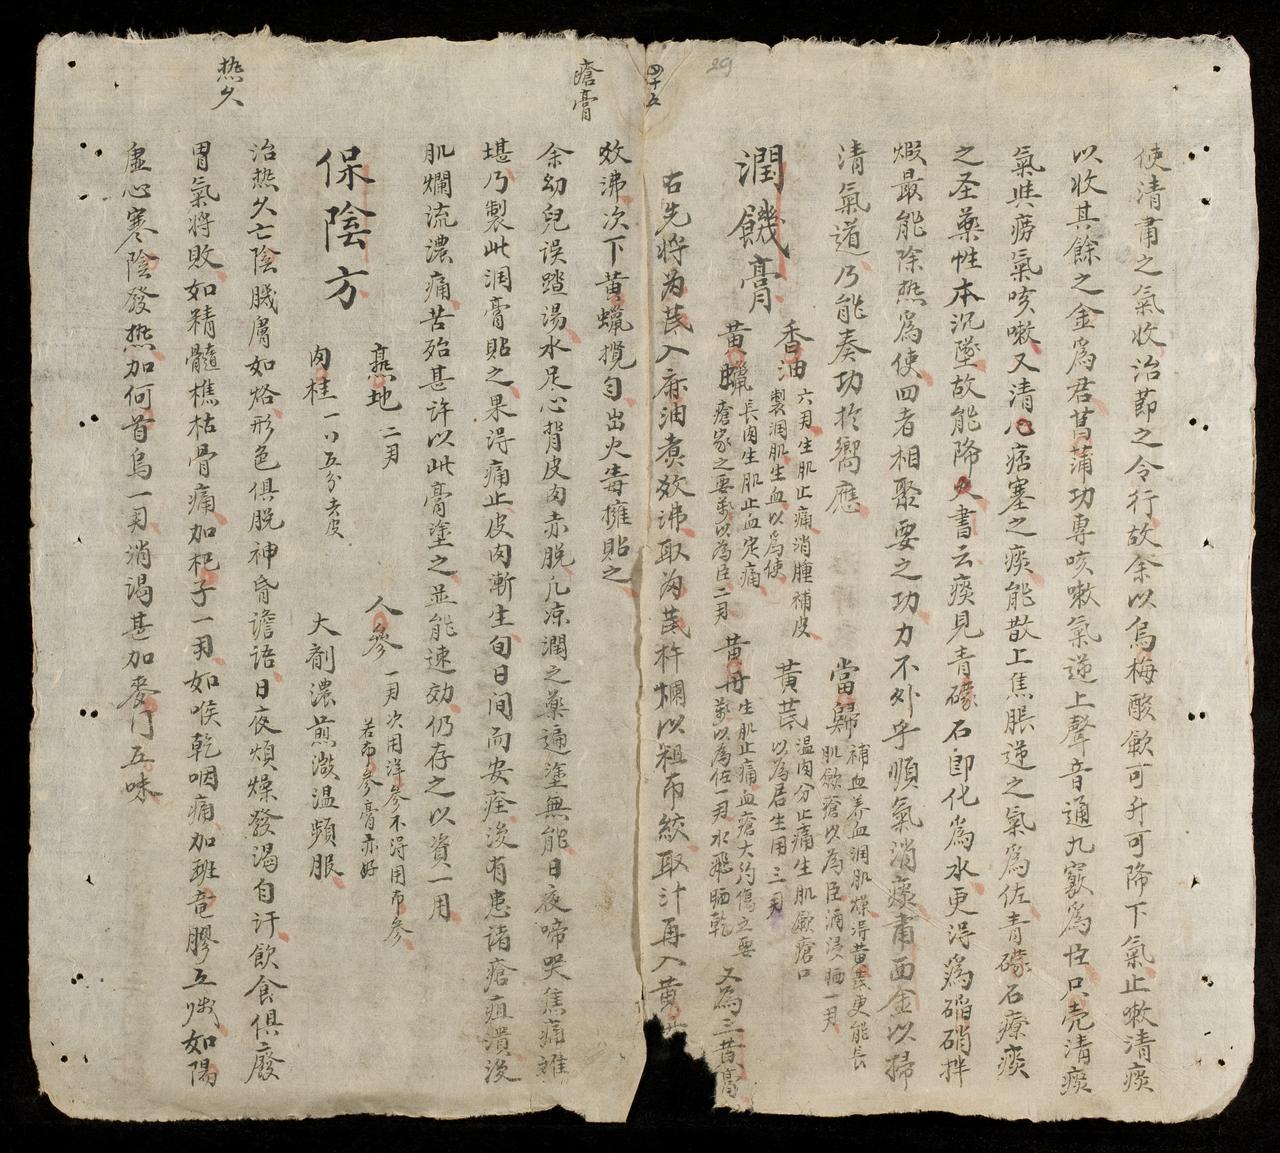 29
四十五
使清肅之氣收治節之令行故余以烏梅酸歛可升可降下氣止嗽清痰
以收其餘之金為君菖蒲功專咳嗽氣逆上聲音通九竅為臣只壳清痰
氣哄癆氣咳嗽又清心痞塞之痰能散上焦脹逆之氣為佐青礞石療痰
之圣藥性本沉墜故能降火書云痰見青礞石即化為水更得為硝拌
煅最能除热為使四者相聚要之功力不外乎順氣消痰肅西金以掃
清氣道乃能奏功於嚮應
潤饑膏
當歸 補血养血润肌燥得黄芪更能長肌歛瘡以為臣酒浸晒一月
香油 六月生肌止痛消腫補皮製润肌生血以為使
黄芪 温肉分止痛生肌歛瘡口以為君生用三月
黄蠟 長肉生肌止血定痛瘡家之要药以為臣二月
黄丹 生肌止痛血瘡大約傷之要药以為佐一月水飛晒乾
又為三昔膏
右先將為芪入麻油煑效沸取為芪杵爛以粗布絞取汁再入黄
效沸次下黄蠟攪匀出火毒擁貼之
瘡膏
余幼兒误踏湯水足心背皮肉赤脱凡凉潤之藥遍塗無能日夜啼哭焦痛難
堪乃製此润膏貼之果得痛止皮肉漸生旬日间而安痊後有患诸瘡疽潰後
肌爛流濃痛苦殆甚许以此膏塗之並能速効仍存之以資一用
保陰方
熟地 二月
人參 一月次用洋參不得用布參若布參膏亦好
肉桂 一㕥五分去皮
大劑濃煎澂温頻服
热久
治热久亡陰膙膚如烙形色俱脱神昏譫语日夜煩燥發渴自汗飲食俱廢
胃氣將敗如精髓樵枯骨痛加杞子一月如喉乾咽痛加班竜膠五戔如陽
虚心寒陰發热加何首烏一月消渴甚加麥门五味